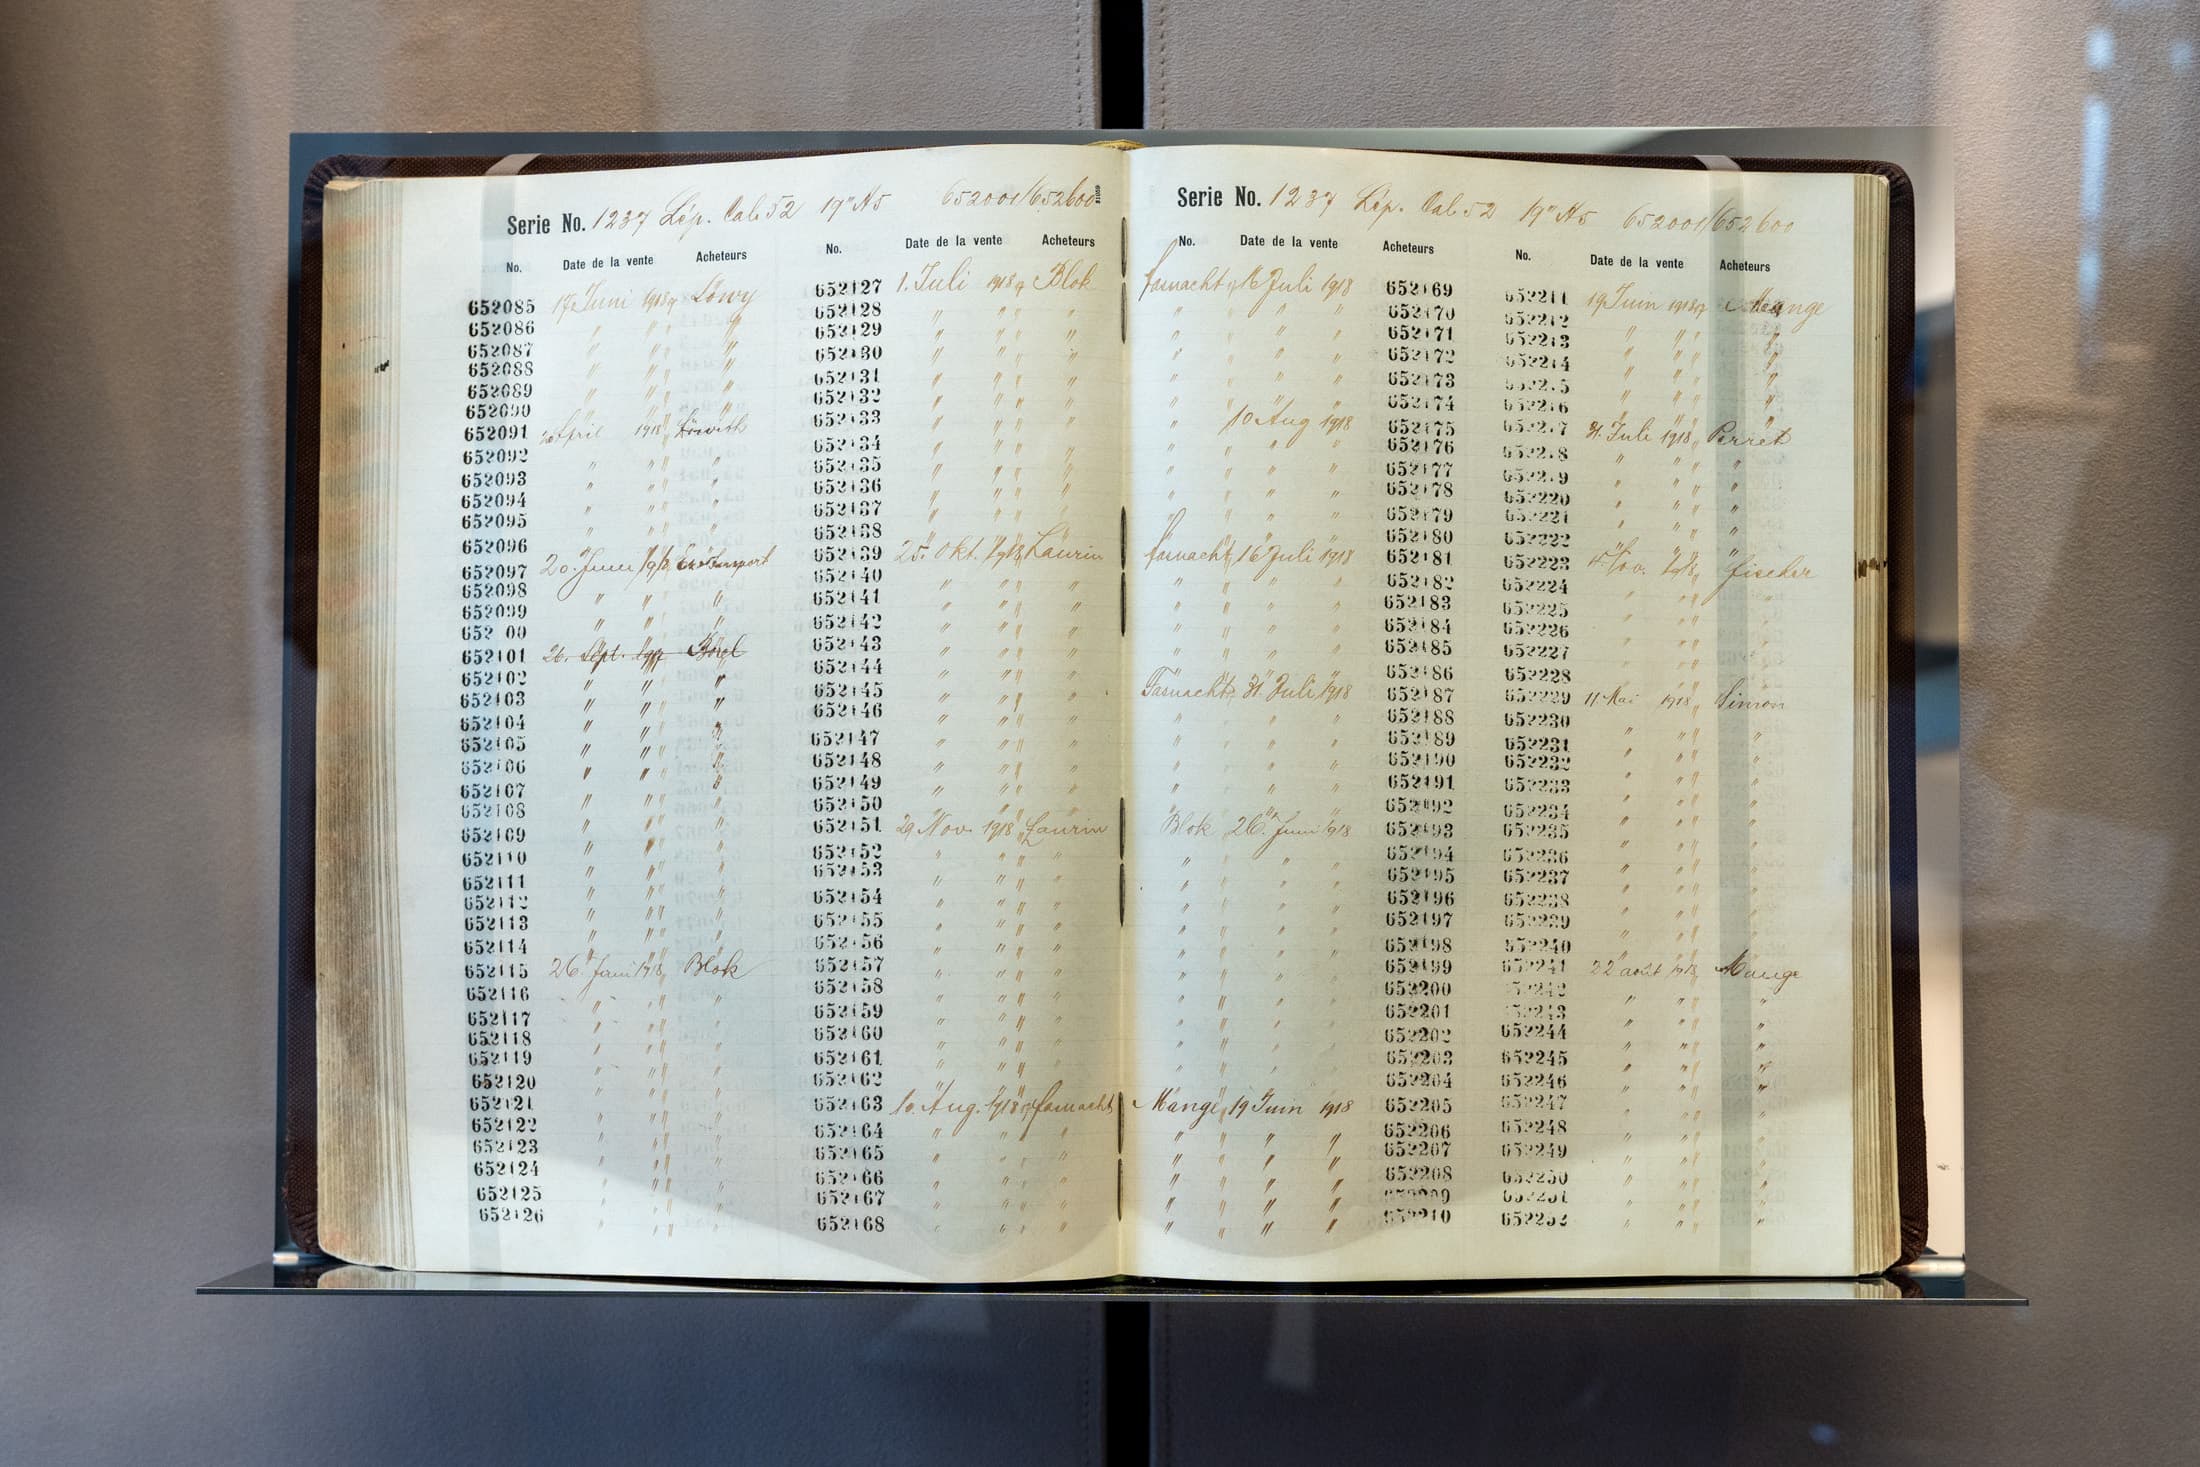 Serie No. 1237 Lép. Cal. 52 19''' N5 652001/652600
No. Date de la vente Acheteurs
652085 17 Juni 1918 Löwy
652086
652087
652088
652089
652090
652091 April 1918
652092
652093
652094
652095
652096
652097 20. Juni 1918
652098
652099
652 00
652101 26. Sept. Borel
652102
652103
652104
652105
652106
652107
652108
652109
652110
652111
652112
652113
652114
652115 26 Juni 1918 Blok
652116
652117
652118
652119
652120
652121
652122
652123
652124
652125
652126
No. Date de la vente Acheteurs
652127 1. Juli 1918 Blok
652128
652129
652130
652131
652132
652133
652134
652135
652136
652137
652138
652139 25. Okt. 1918 Laurin
652140
652141
652142
652143
652144
652145
652146
652147
652148
652149
652150
652151 29 Nov. 1918 Laurin
652152
652153
652154
652155
652156
652157
652158
652159
652160
652161
652162
652163 10. Aug. 1918 Fasnacht
652164
652165
652166
652167
652168
Serie No. 1237 Lép. Cal. 52 19''' N5 652001/652600
No. Date de la vente Acheteurs
Fasnacht 16 Juli 1918 652169
652170
652171
652172
652173
652174
10 Aug 1918 652175
652176
652177
652178
652179
652180
Fasnacht 16 Juli 1918 652181
652182
652183
652184
652185
652186
Fasnacht 31. Juli 1918 652187
652188
652189
652190
652191
652192
Blok 26. Juni 1918 652193
652194
652195
652196
652197
652198
652199
652200
652201
652202
652203
652204
Mange 19 Juin 1918 652205
652206
652207
652208
652209
652210
No. Date de la vente Acheteurs
652211 19 Juin 1918 Mange
652212
652213
652214
652215
652216
652217 31. Juli 1918 Perret
652218
652219
652220
652221
652222
652223 Nov. 1918 Fischer
652224
652225
652226
652227
652228
652229 11. Mai 1918 Simon
652230
652231
652232
652233
652234
652235
652236
652237
652238
652239
652240
652241 22 août 1918 Mange
652242
652243
652244
652245
652246
652247
652248
652249
652250
652251
652252